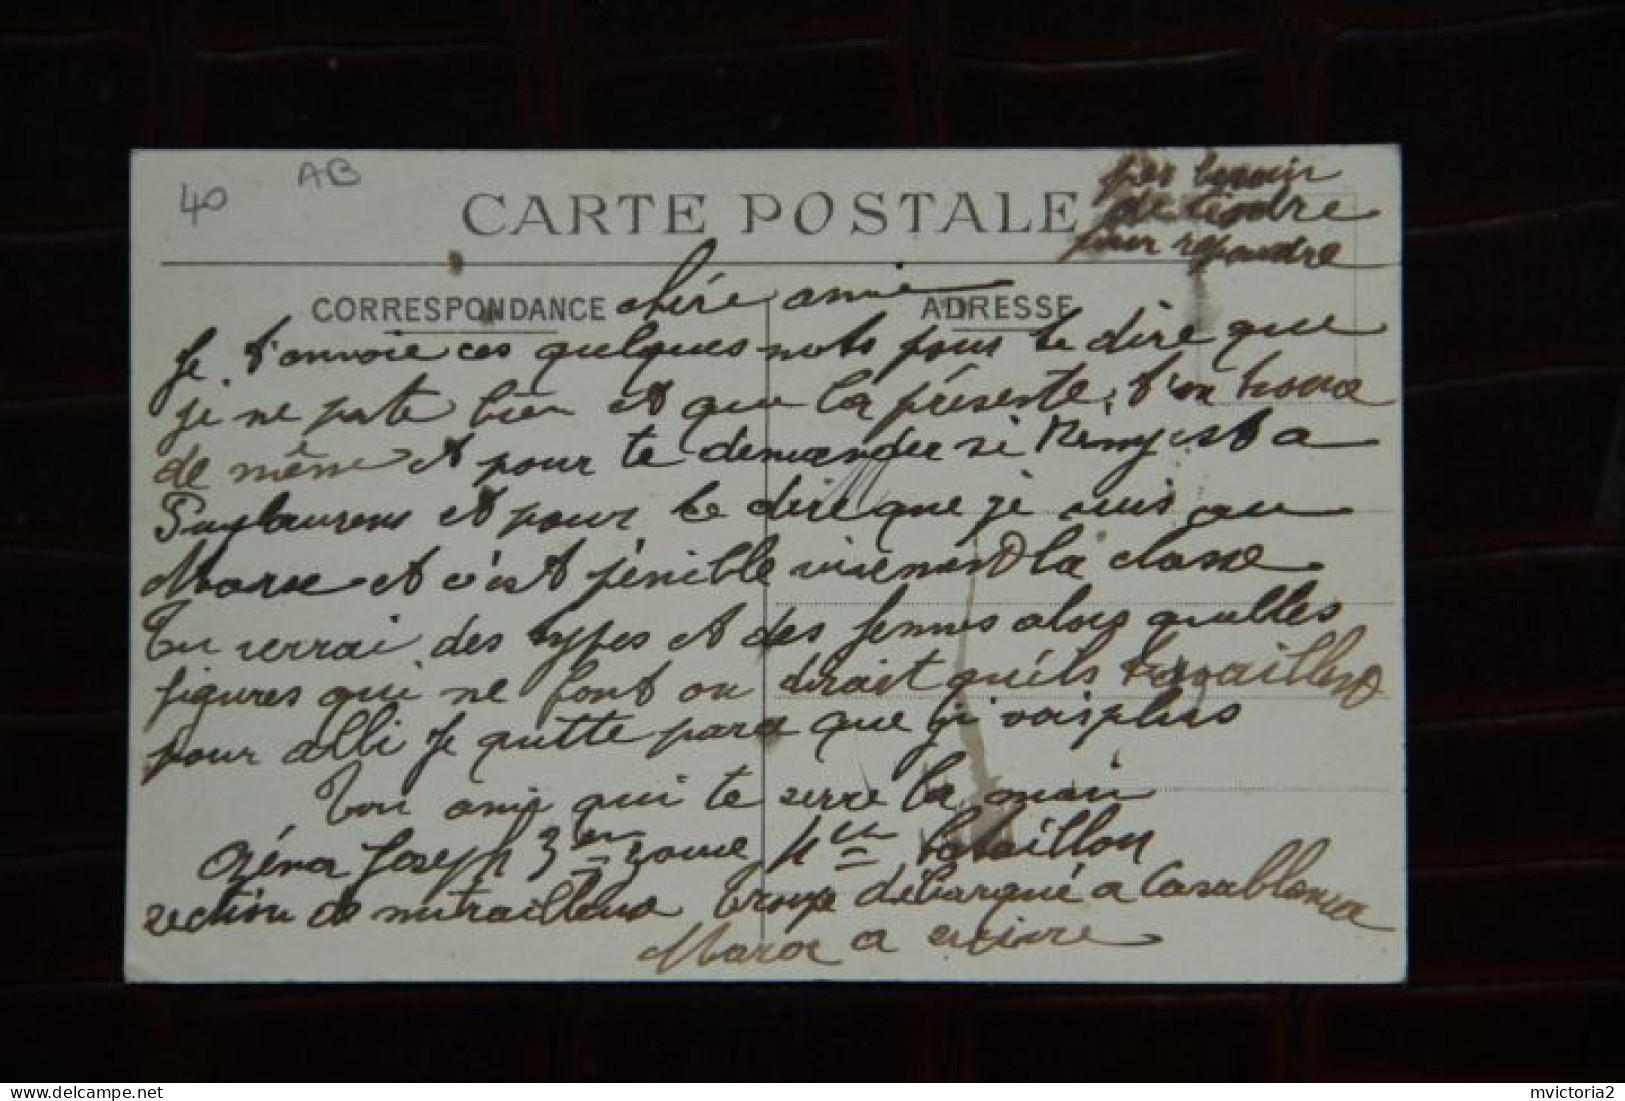 40 AB
CARTE POSTALE
pas besoin
de timbre
pour repondre
CORRESPONDANCE
ADRESSE
chére amie
Je t'anvoie ces quelques mots pour te dire que
je me porte bien et que la présente t'en trouve
de même et pour te demander si Remy est a
Puylaurens et pour te dire que je suis au
Maroc et c'est pénible vivement la classe
Tu verrai des types et des femmes alors quelles
figures qui ne font on dirait qu'ils travaillent
pour alli Je quitte parce que j'i vois plus
Ton ami qui te serre la main
Joseph 3en zouave 4me bataillon
section de mitrailleuse troupe débarqué a Casablanca
Maroc a
mvictoria2